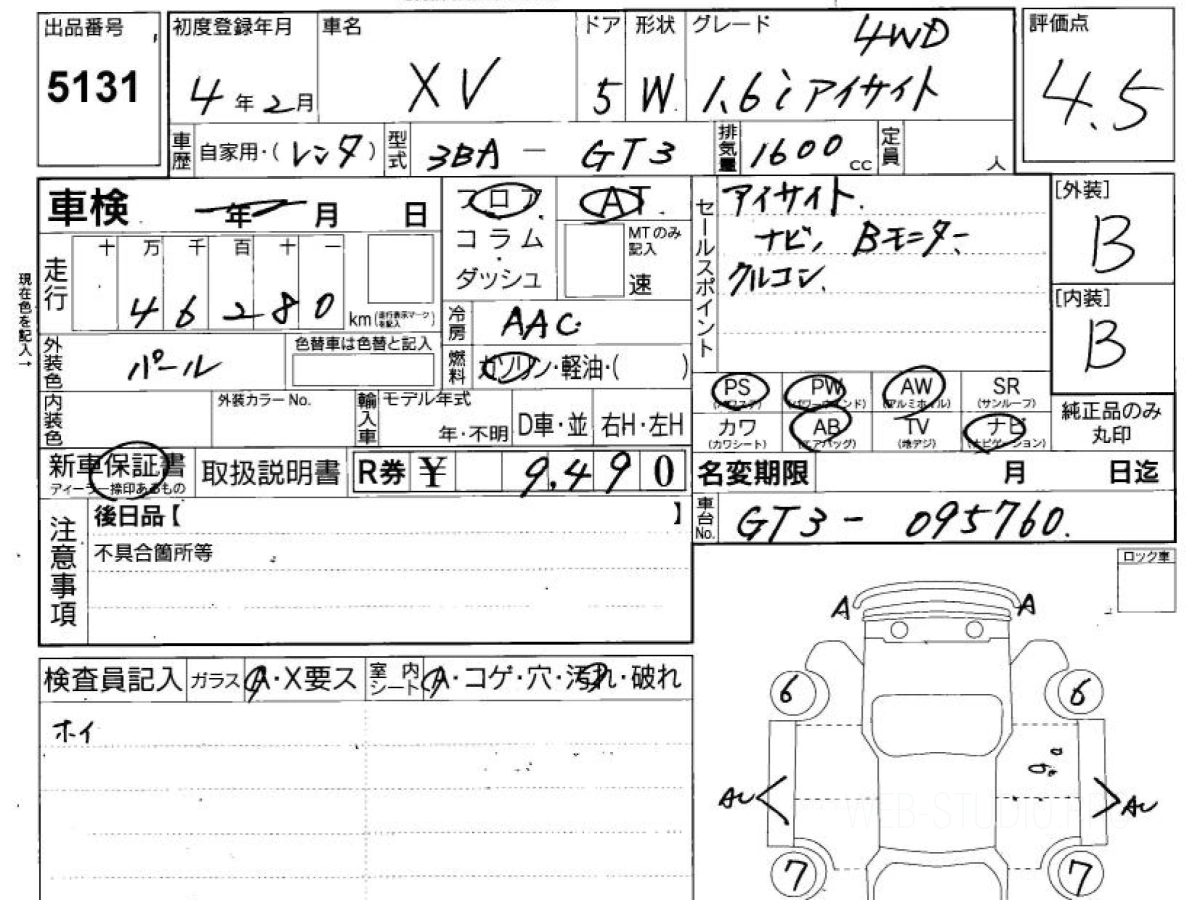 出品番号 5131
初度登録年月 4年2月
車名 XV
ドア 5
形状 W.
グレード 4WD
1.6i アイサイト
評価点 4.5
車歴 自家用・(レンタ)
型式 3BA - GT3
排気量 1600cc
定員 人
車検 年 月 日
フロア
コラム
・
ダッシュ
AT.
MTのみ記入
速
セールスポイント
アイサイト.
ナビ, Bモニター.
クルコン.
[外装]
B
[内装]
B
現在色を記入→
走行 十万千百十一
46280 km(走行表示マークを記入)
冷房 AAC
外装色 パール
色替車は色替と記入
燃料 ガソリン・軽油・( )
内装色
外装カラーNo.
輸入車 モデル年式
年・不明
D車・並
右H・左H
PS (パワステ)
PW (パワーウインド)
AW (アルミホイル)
SR (サンルーフ)
カワ (カワシート)
AB (エアバッグ)
TV (地デジ)
ナビ (ナビゲーション)
純正品のみ
丸印
新車保証書
ディーラー捺印あるもの
取扱説明書
R券 ¥ 9,490
名変期限 月 日迄
注意事項
後日品【 】
不具合箇所等
車台No. GT3 - 095760.
ロック車
検査員記入
ガラス A・X要ス
室内シート A・コゲ・穴・汚れ・破れ
ホイ
A
A
6
6
AU
AU
WEB-STUDIO
7
7